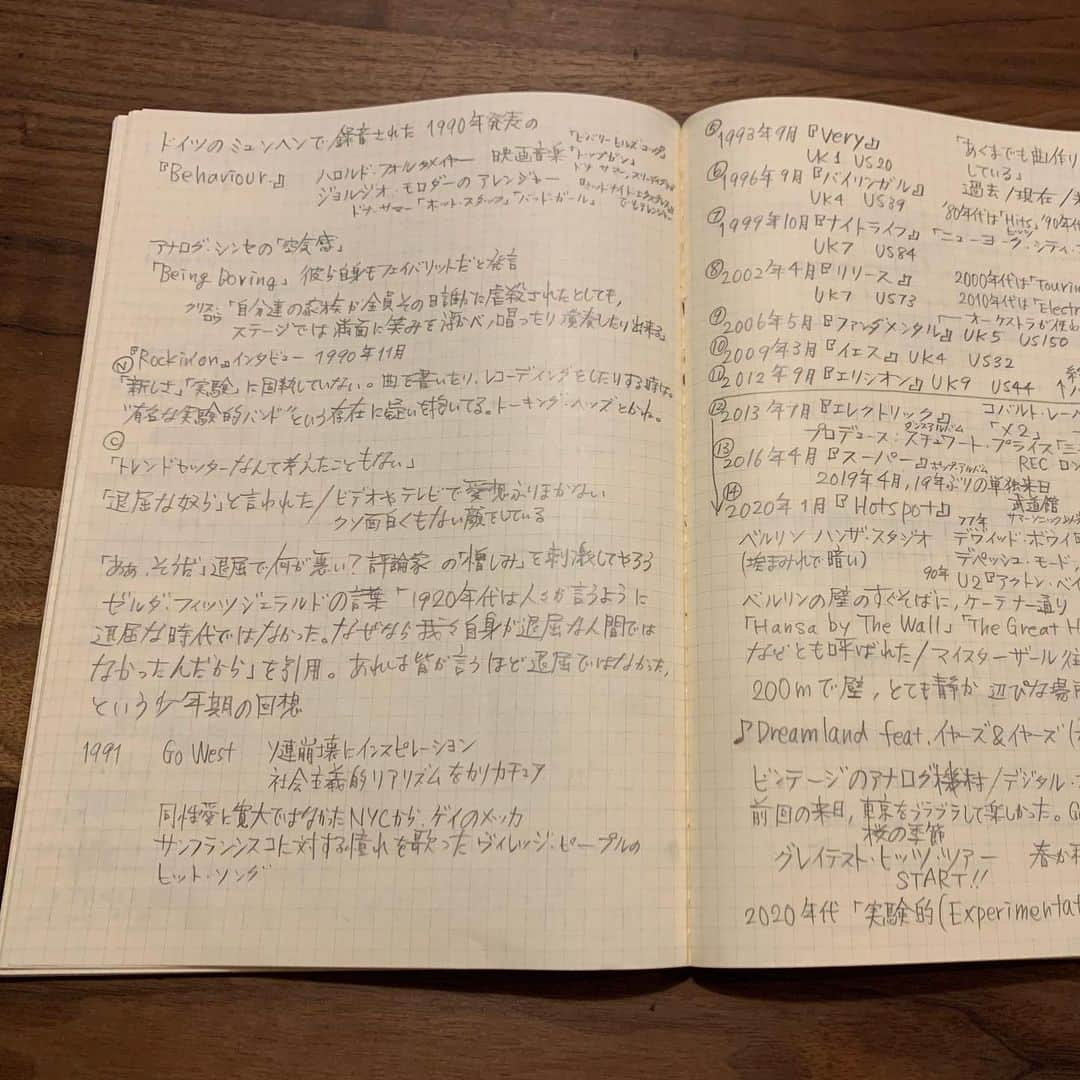 ドイツのミュンヘンで録音された 1990年発表の
『Behaviour.』 ハロルド・フォルタメイヤー 映画音楽 「ビバリーヒルズコップ」
「トップガン」
ジョルジオ・モロダーのアレンジャー
ドナ・サマー「ホット・スタッフ」「バッド・ガール」 でもアレンジャー
アナログ・シンセの「空気感」
「Being Boring」 彼ら自身もフェイバリットだと発言
クリス・ロウ 「自分達の家族が全員その日誰かに虐殺されたとしても,
ステージでは満面に笑みを浮かべ, 唱ったり演奏したり出来る
Ⓝ 『Rockin'on』インタビュー 1990年11月
「新しさ」「実験」に固執していない。曲を書いたり, レコーディングをしたりする時は。
"有名な実験的バンド"という存在に疑いを抱いてる。トーキング・ヘッズとかね。
Ⓒ
「トレンドセッターなんて考えたこともない」
「退屈な奴ら」と言われた/ビデオやテレビで愛想ふりまかない
クソ面白くもない顔をしている
「ああ, そうだ」退屈で何が悪い? 評論家の「憎しみ」を刺激してやろう
ゼルダ・フィッツジェラルドの言葉「1920年代は人々が言うように
退屈な時代ではなかった。なぜなら我々自身が退屈な人間では
なかったんだから」を引用。あれは皆が言うほど退屈ではなかった,
という少年期の回想
1991 Go West ソ連崩壊にインスピレーション
社会主義的リアリズムをカリカチュア
同性愛に寛大ではなかったNYCから, ゲイのメッカ
サンフランシスコに対する憧れを歌ったヴィレッジ・ピープルの
ヒット・ソング
⑤1993年9月『Very』
UK1 US20
⑥1996年9月『バイリンガル』
UK4 US39
⑦1999年10月『ナイトライフ』
UK7 US84
⑧2002年4月『リリース』
UK7 US73
⑨2006年5月『ファンダメンタル』UK5 US150
⑩2009年3月『イエス』UK4 US32
⑪2012年9月『エリシオン』UK9 US44
「あくまでも曲作り
している」
過去/現在/
'80年代は「Hits」'90年代
ヒッツ
「ニューヨーク・シティ・
2000年代は「Tourin
2010年代は「Electr
⑫2013年7月『エレクトリック』 コバルト・レー
ダンスアルバム 「×2」
プロデュース・スチュワート・プライス
⑬2016年4月『スーパー』 REC ロン
2019年4月, 19年ぶりの単独来日
武道館
⑭2020年1月『Hotspot』
サマーソニック
ベルリン ハンザ・スタジオ 77年 デヴィッド・ボウイ
(埃まみれで暗い) デペッシュ・モード,
90年 U2『アクトン・ベイ
ベルリンの壁のすぐそばに, ケーテナー通り
「Hansa by The Wall」「The Great H
などとも呼ばれた/マイスターザール
200mで壁, とても静か 辺ぴな場所
♪Dreamland feat. イヤーズ&イヤーズ
ビンテージのアナログ機材/デジタル・
前回の来日, 東京をブラブラして楽しかった。
桜の季節
グレイテスト・ヒッツ・ツアー 春か
START!!
2020年代「実験的(Experimentat